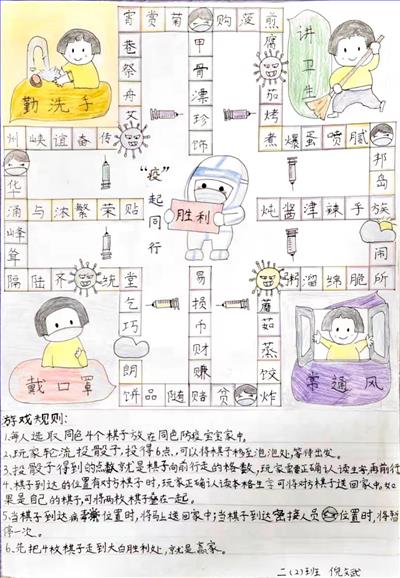 宵赏菊购菠煎
巷祭舟艾
甲骨漂珍饰
腐茄烤
讲卫生
勤洗手
州峡谊奋传
煮爆蛋喷腻
邦岛
华
“疫”起同行
胜利
涌与浓繁荣贴
炖酱津辣手族
峰耸
闹
隔陆齐统堂
粥溜绵脆所
乞巧朗
易损币财赚
蘑茹蒸饺
戴口罩
常通风
饼品随赔贫炸
游戏规则:
1.每人选取同色4个棋子放在同色防疫宝宝家中。
2.玩家轮流投骰子,投得6点,可以将棋子移至泡泡处,等待出发。
3.投骰子得到的点数就是棋子向前行走的格数,玩家需正确认读生字,再前行
4.棋子到达的位置有对方棋子时,玩家正确认读本格生字可将对方棋子送回家中。如
果是自己的棋子,可将两枚棋子叠在一起。
5.当棋子到达病毒位置时,将马上送回家中;当棋子到达密接人员位置时,将暂
停一次。
6.先把4枚棋子走到大白胜利处,就是赢家。
二(2)班